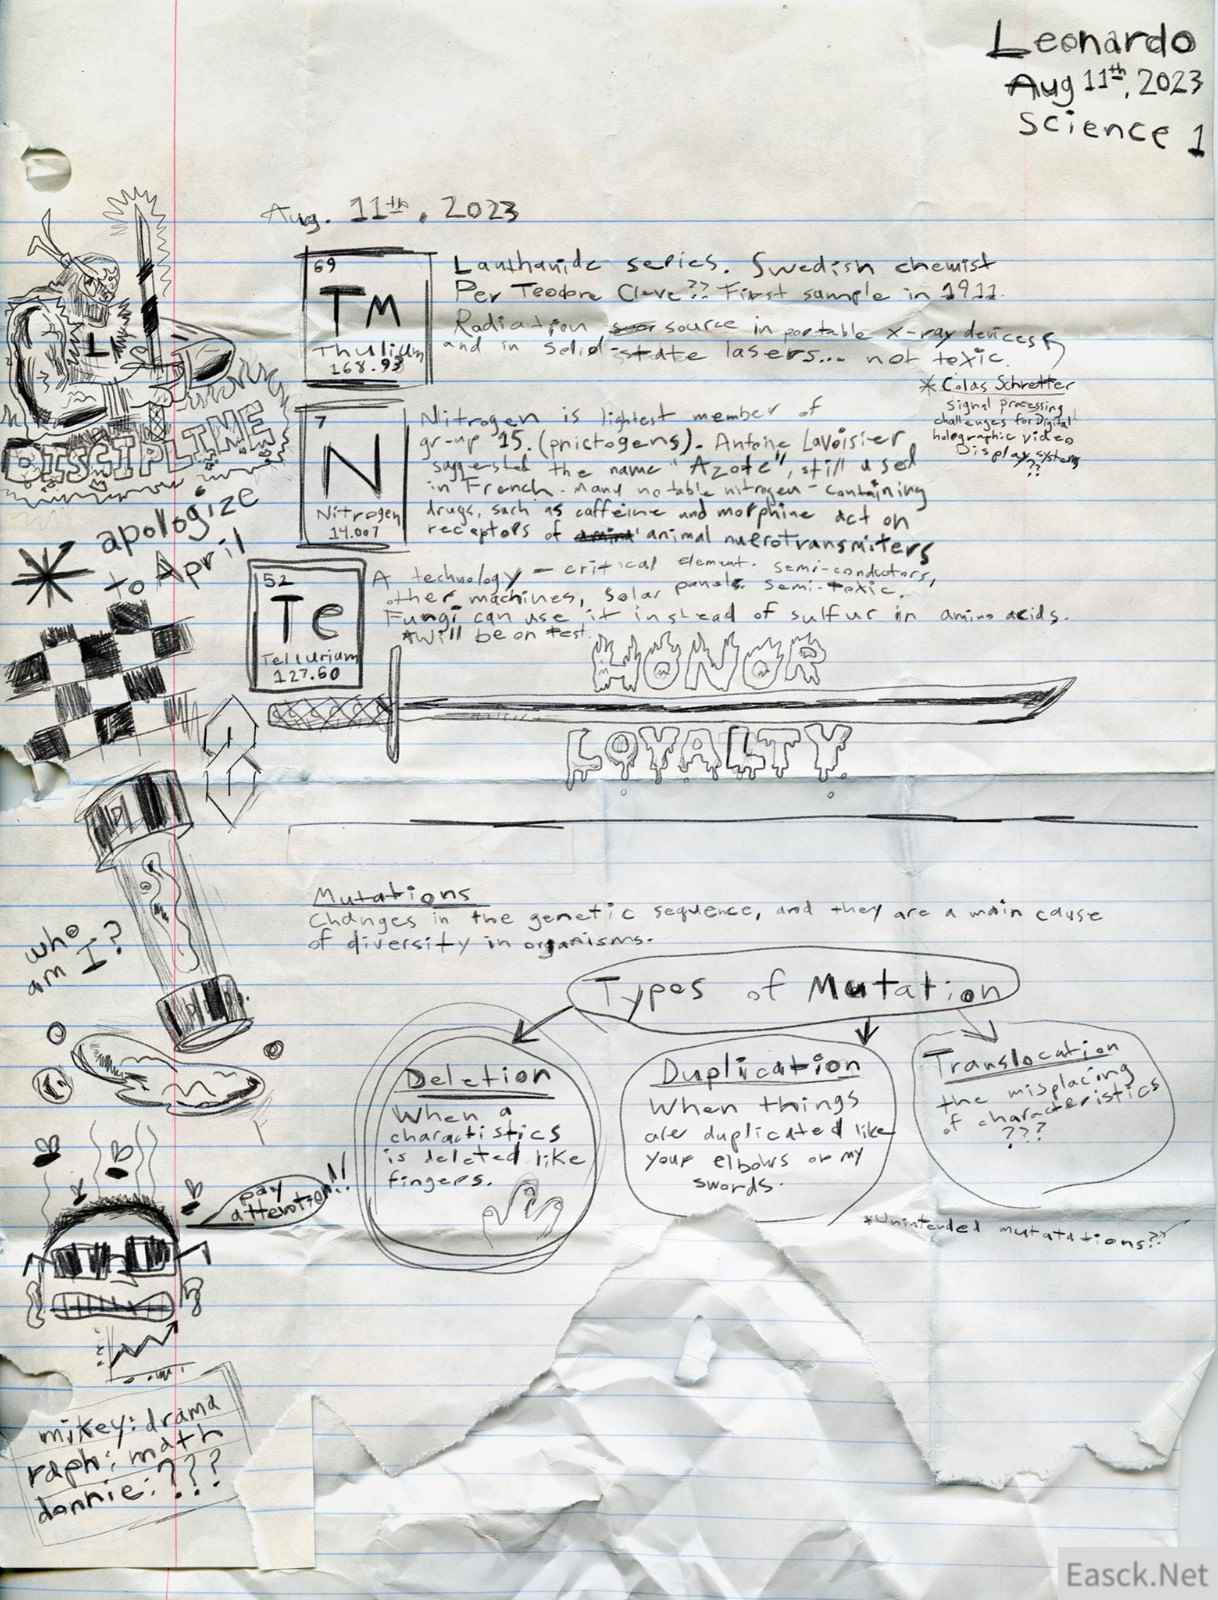 Leonardo
Aug 11th, 2023
Science 1
Aug. 11th, 2023
69
Tm
Thulium
168.93
Lanthanide series. Swedish chemist
Per Teodore Cleve?? First sample in 1911.
Radiation source in portable x-ray devices
and in solid-state lasers... not toxic
* Colas Schretter
signal processing
challenges for Digital
holographic video
Display systems
??
7
N
Nitrogen
14.007
Nitrogen is lightest member of
group 15. (pnictogens). Antoine Lavoisier
suggested the name "Azote", still used
in French. Many notable nitrogen-containing
drugs, such as caffeine and morphine act on
receptors of animal nuerotransmiters
52
Te
Tellurium
127.60
A technology-critical element. semi-conductors,
other machines, solar panels. semi-toxic.
Fungi can use it instead of sulfur in amino acids.
*Will be on test.
L
DISCIPLINE
* apologize
to April
HONOR
LOYALTY
who
am I?
Mutations
Changes in the genetic sequence, and they are a main cause
of diversity in organisms.
Types of Mutation
Deletion
When a
charactistics
is deleted like
fingers.
Duplication
When things
are duplicated like
your elbows or my
swords.
Translocation
the misplacing
of characteristics
???
*Unintended mutatations??
pay
attention!!
mikey: drama
raph: math
donnie: ???
Easck.Net